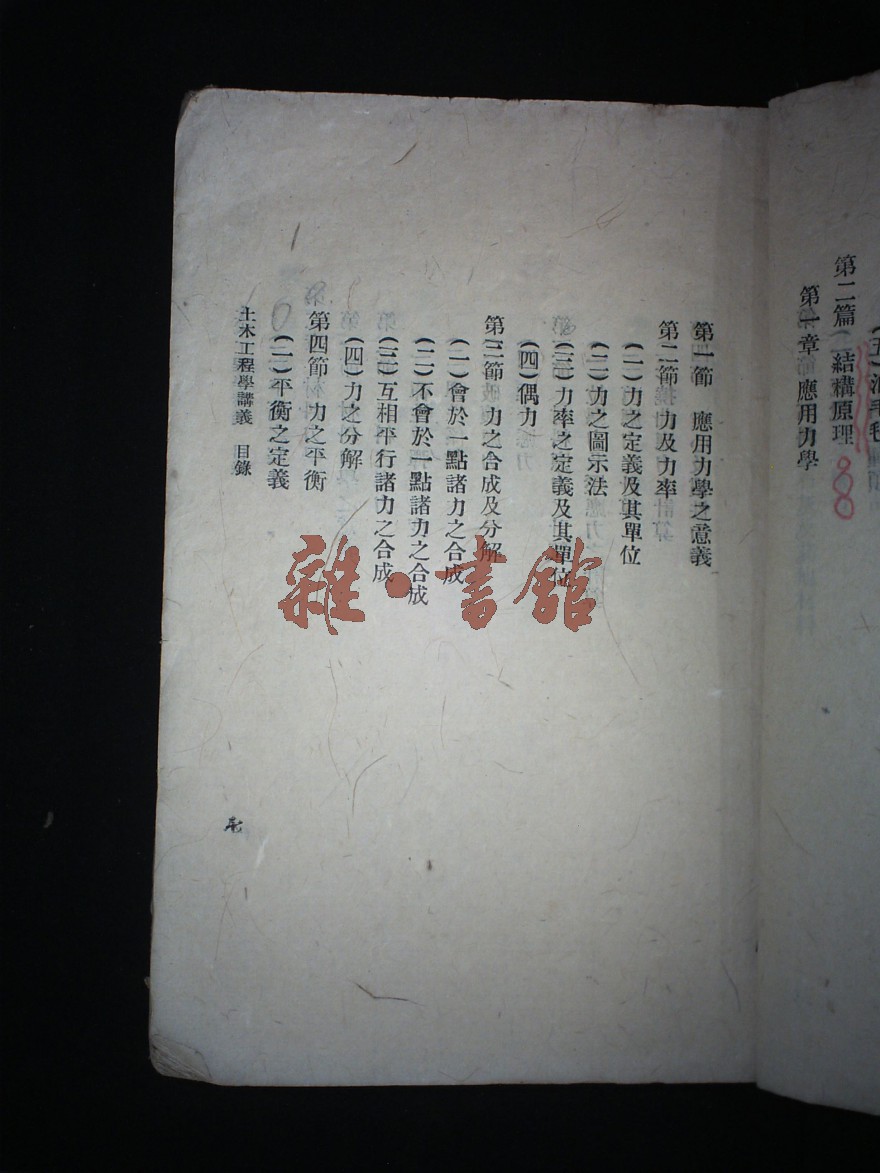 第二篇 結構原理
第一章 應用力學
第一節 應用力學之意義
第二節 力及力率
(一)力之定義及其單位
(二)力之圖示法
(三)力率之定義及其單位
(四)偶力
第三節 力之合成及分解
(一)會於一點諸力之合成
(二)不會於一點諸力之合成
(三)互相平行諸力之合成
(四)力之分解
第四節 力之平衡
(一)平衡之定義
土木工程學講義 目錄
雜·書館